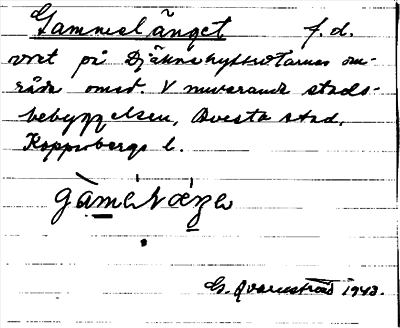 Gammelänget f.d.
vret på Djäknehyttetarnas om-
råde omst. V nuvarande stads-
bebyggelsen, Avesta stad,
Kopparbergs l.
G. Qvarnström 1943.